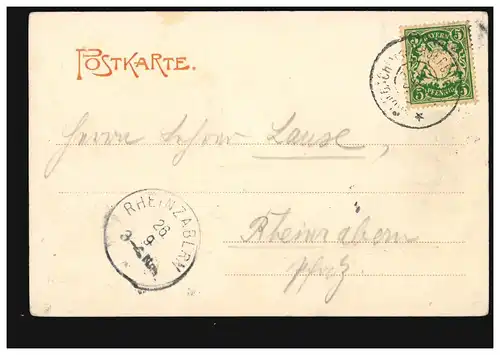 POSTKARTE.
BAYERN
5 5
PFENNIG
Herrn Lehrer Lause,
RHEINZABERN
26
9
3-4 Nm
Rheinzabern
Pfalz